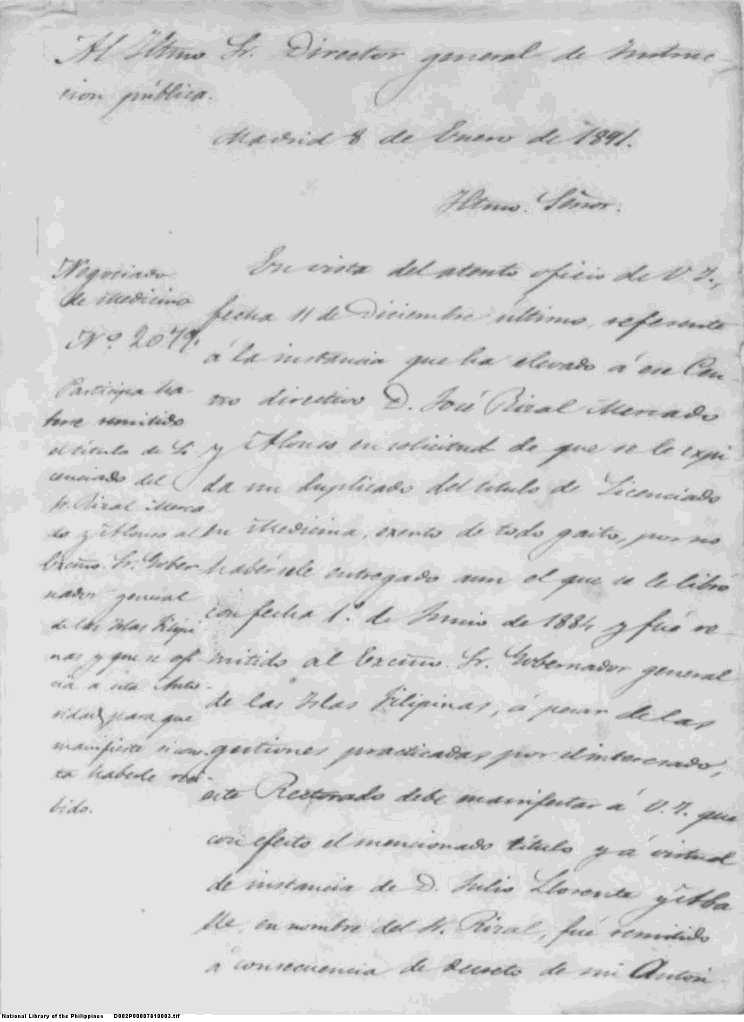 Al Iltmo Sr. Director general de Instruc-
cion pública.
Madrid 8 de Enero de 1891.
Iltmo. Señor.
Negociado
de Medicina
Nº 2079.
Participa ha-
berse remitido
el título de Li-
cenciado del
Sr. Rizal Merca
do y Alonso al
Excmo. Sr. Gober
nador general
de las Islas Filipi
nas y que se ofi
cia a esta Auto-
ridad para que
manifieste si cons-
ta haberle reci-
bido.
En vista del atento oficio de V. I.,
fecha 11 de Diciembre último, referente
á la instancia que ha elevado á ese Cen-
tro directivo D. José Rizal Mercado
y Alonso en solicitud de que se le expi
da un duplicado del título de Licenciado
en Medicina, exento de todo gasto, por no
habérsele entregado aun el que se le libró
con fecha 1º de Junio de 1884 y fué re-
mitido al Excmo. Sr. Gobernador general
de las Islas Filipinas, á pesar de las
gestiones practicadas por el interesado,
este Rectorado debe manifestar á V. I. que
con efecto el mencionado título y á virtud
de instancia de D. Julio Llorente y
en nombre del Sr. Rizal, fué remitido
á consecuencia de decreto de mi Antece